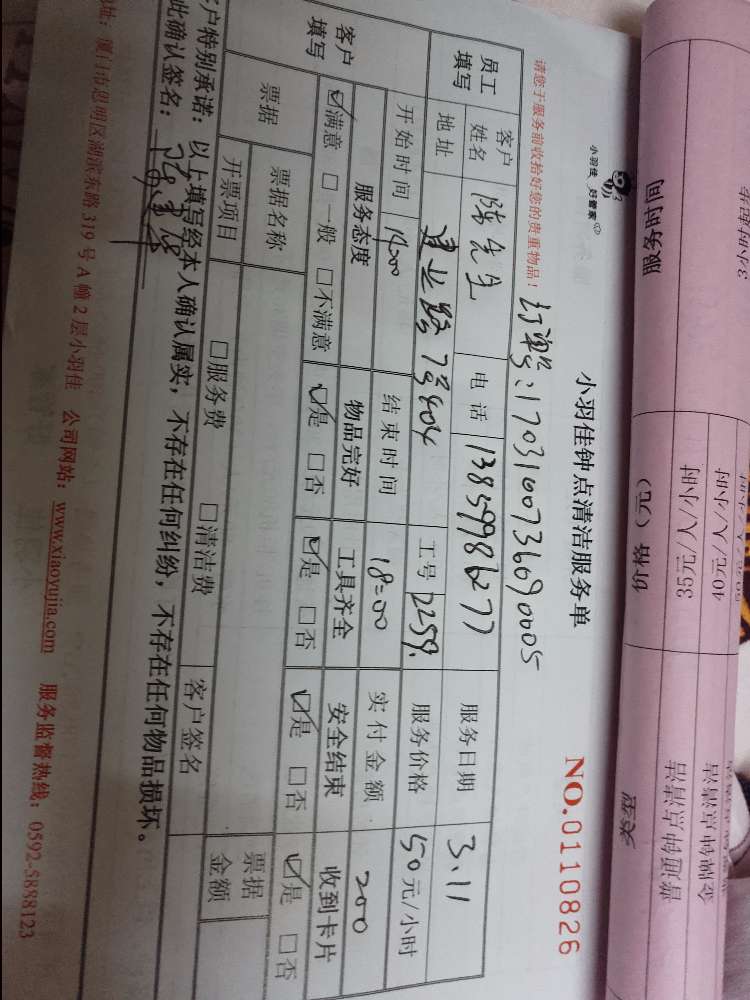 小羽佳 好管家
小羽佳钟点清洁服务单
NO.0110826
请您于服务前收拾好您的贵重物品！ 订单号：1703100736090005
员工填写 客户姓名 陈先生 电话 13859986277 服务日期 3.11
地址 建业路 号804 工号 2259 服务价格 50元/小时
开始时间 14:00 结束时间 18:00 实付金额 200
客户填写 服务态度 物品完好 工具齐全 安全结束 收到卡片
☑满意 □一般 □不满意 ☑是 □否 ☑是 □否 ☑是 □否 ☑是 □否
票据 票据名称 票据金额
开票项目 □服务费 □清洁费 客户签名
客户特别承诺：以上填写经本人确认属实，不存在任何纠纷，不存在任何物品损坏。
此确认签名：
地址：厦门市思明区湖滨东路319号A幢2层小羽佳 公司网站：www.xiaoyujia.com 服务监督热线：0592-5888123
服务时间
价格（元）
40元/人/小时
35元/人/小时